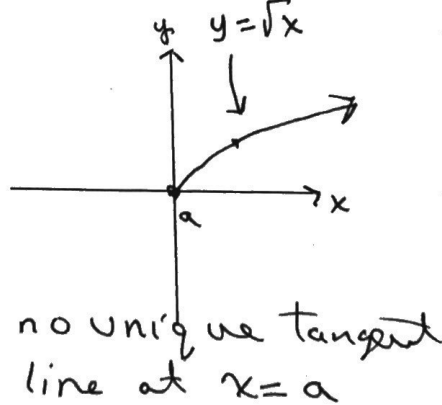 y y=√x
x
a
no unique tangent
line at x=a